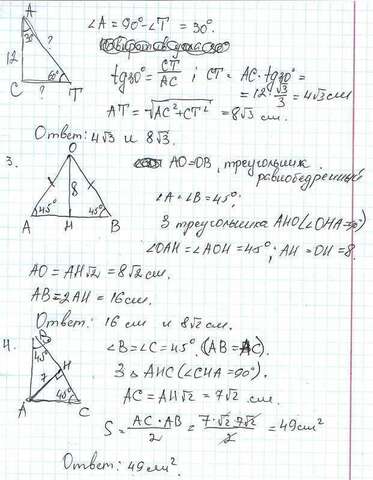 A
30°
?
12
60°
C ? T
∠A = 90° - ∠T = 30°.
tg30° = CT/AC ; CT = AC·tg30° =
= 12·√3/3 = 4√3 см
AT = √AC²+CT² = 8√3 см.
Ответ: 4√3 и 8√3.
3.
O
8
45° 45°
A H B
AO=OB, треугольник
равнобедренный
∠A=∠B=45°;
Из треугольника AHO (∠OHA=90°)
∠OAH=∠AOH=45°; AH=OH=8.
AO=AH√2=8√2 см.
AB=2AH=16 см.
Ответ: 16 см и 8√2 см.
4.
B
45°
H
7
45°
A C
∠B=∠C=45°. (AB=AC).
Из △ AHC (∠CHA=90°).
AC=AH√2=7√2 см.
S = AC·AB/2 = 7·√2·7√2/2 = 49 см²
Ответ: 49 см².